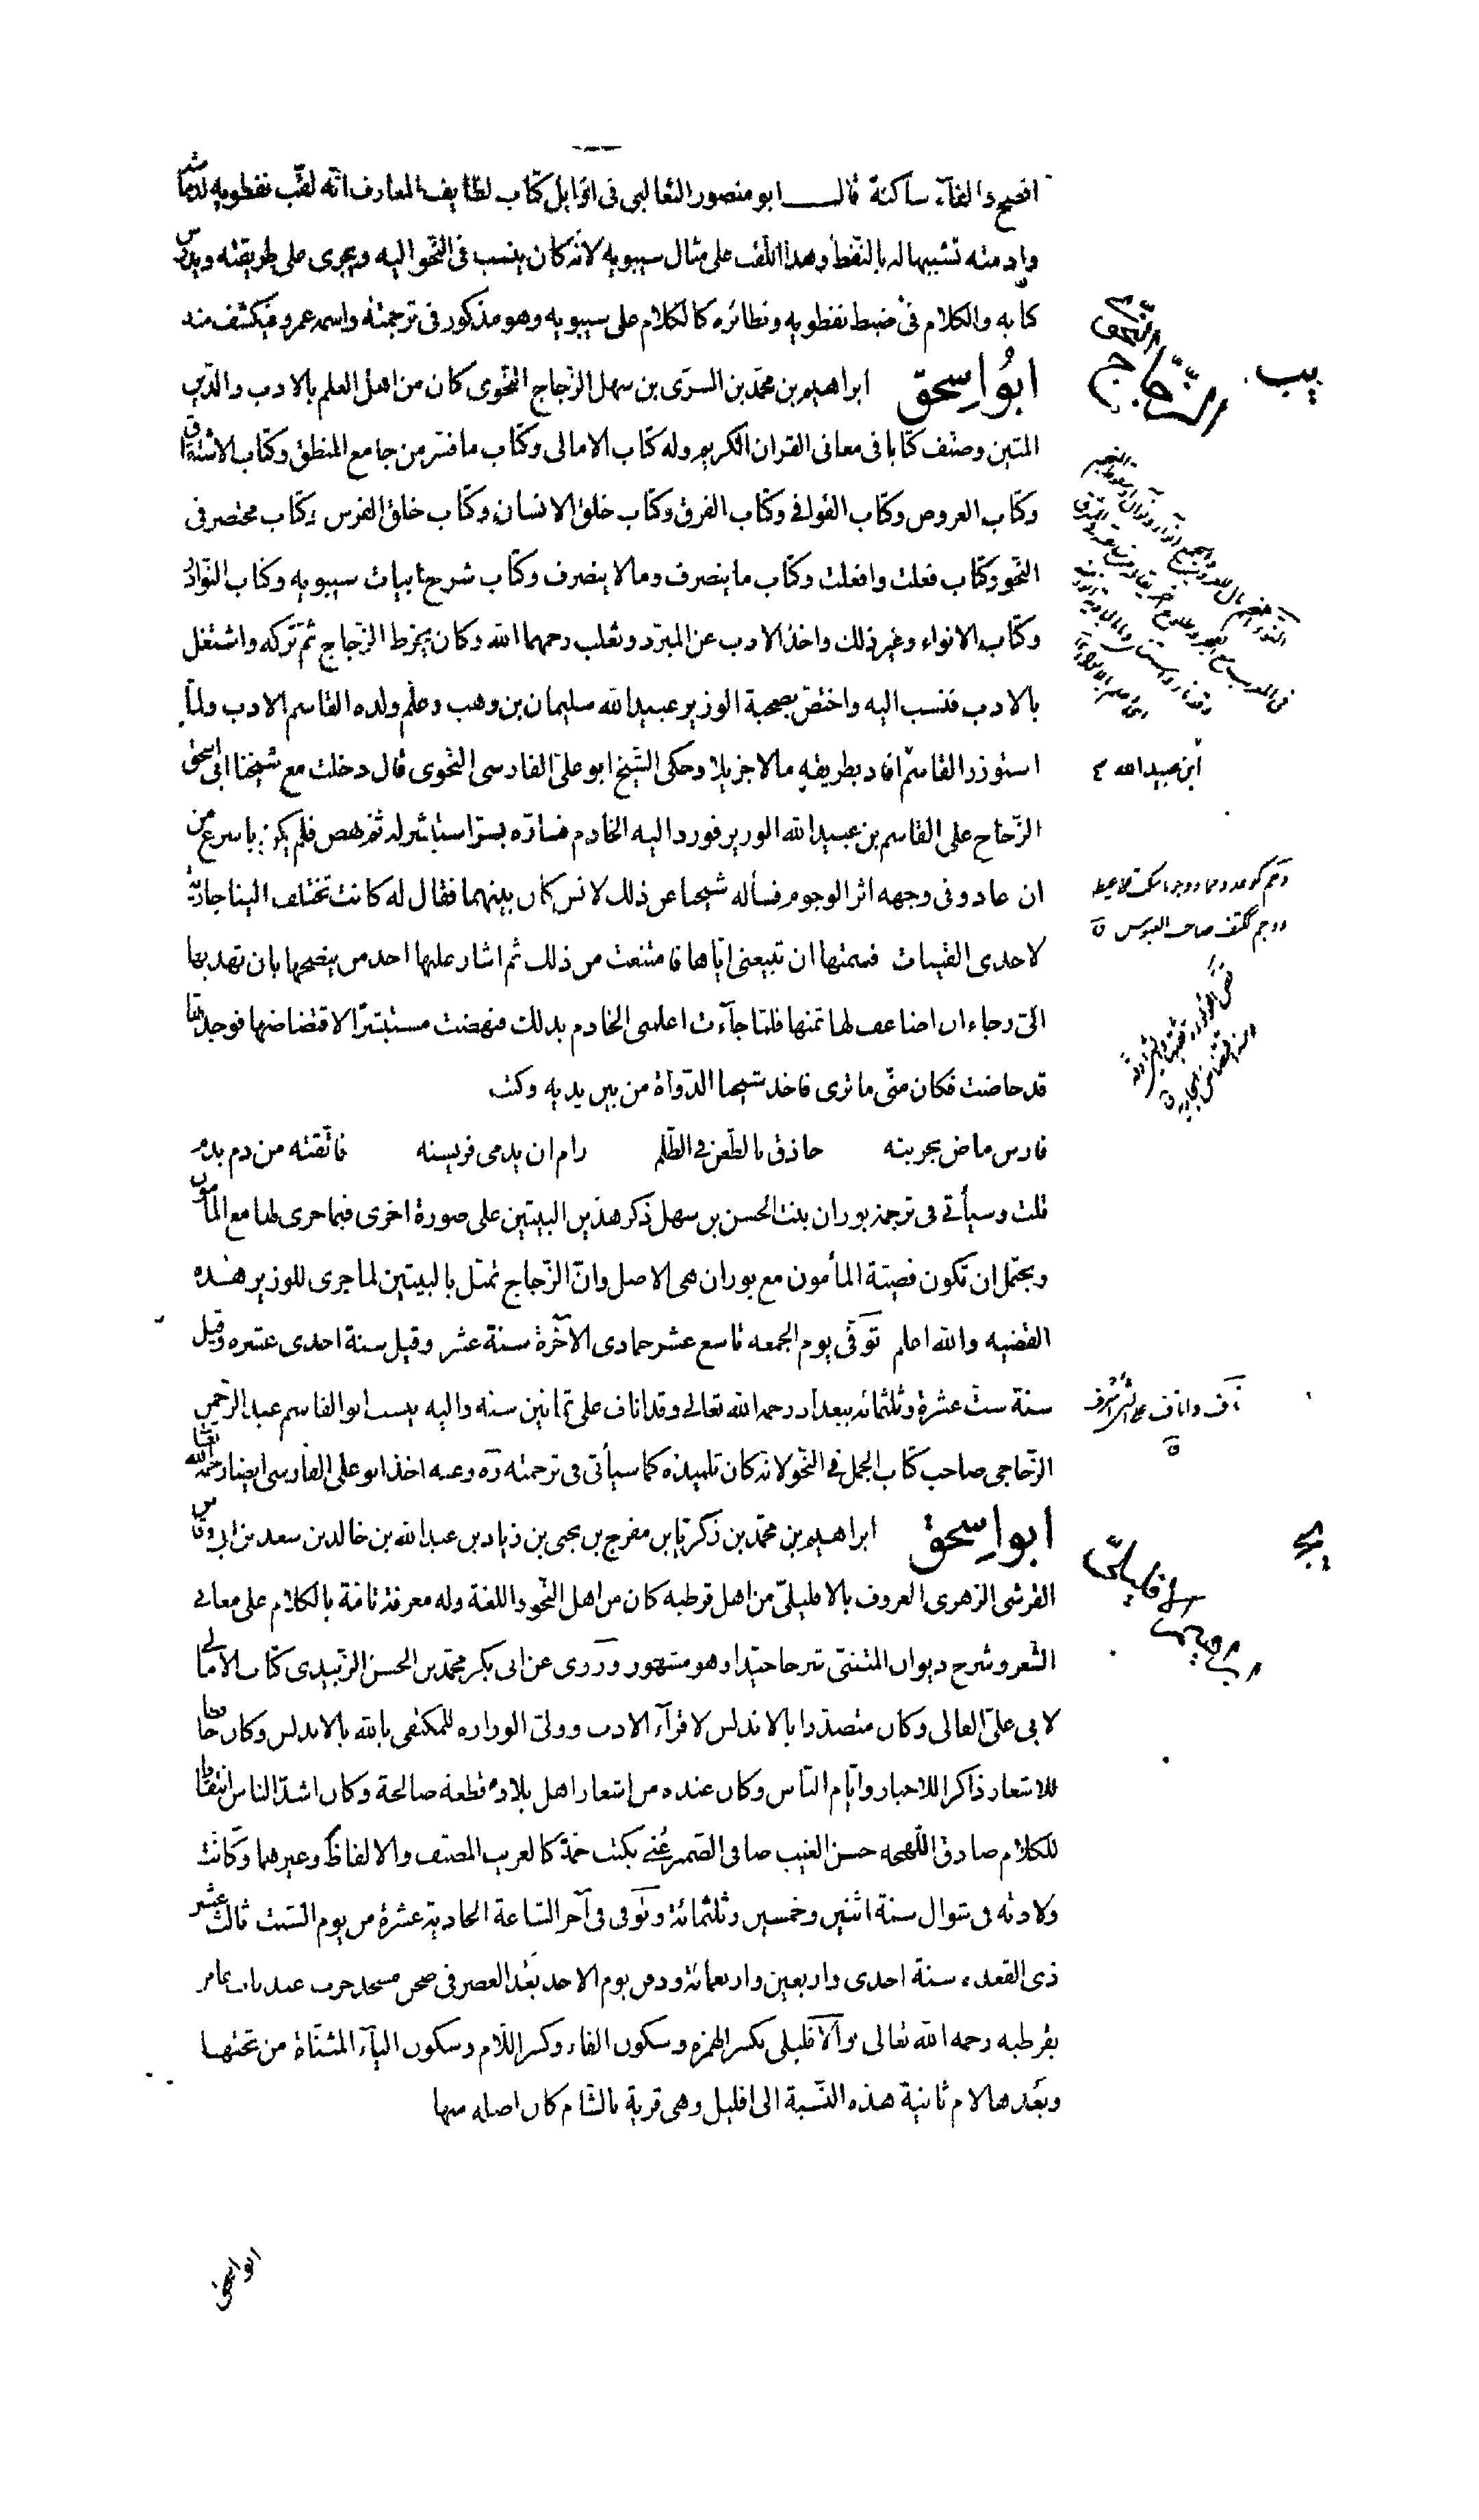 افصح والفاء ساكنة قال ابو منصور الثعالبي فى اوايل كتاب لطايف المعارف انه لقب نفطويه لدمامته
وادمته تشبيها له بالنفط وهذا اللقب على مثال سيبويه لانه كان ينسب فى النحو اليه ويجرى على طريقته ويدرس
كتابه والكلام فى ضبط نفطويه ونظائره كالكلام على سيبويه وهو مذكور فى ترجمته واسمه عمرو فيكشف منه
الزجاج النحوى
يب
ابو اسحق ابراهيم بن محمد بن السرى بن سهل الزجاج النحوى كان من اهل العلم بالادب والدين
المتين وصنف كتابا فى معانى القران الكريم وله كتاب الامالى وكتاب ما فسر من جامع المنطق وكتاب الاشتقاق
وكتاب العروض وكتاب القوافى وكتاب الفرق وكتاب خلق الانسان وكتاب خلق الفرس وكتاب مختصر فى
النحو وكتاب فعلت وافعلت وكتاب ما ينصرف وما لا ينصرف وكتاب شرح ابيات سيبويه وكتاب النوادر
وكتاب الانواء وغير ذلك واخذ الادب عن المبرد وثعلب رحمهما الله وكان يخرط الزجاج ثم تركه واشتغل
بالادب فنسب اليه واختص بصحبة الوزير عبيد الله سليمان بن وهب وعلم ولده القاسم الادب ولما
استوزر القاسم افاد بطريقه مالا جزيلا وحكى الشيخ ابو على الفارسى النحوى قال دخلت مع شيخنا ابى اسحق
ابن عبيد الله
الزجاج على القاسم بن عبيد الله الوزير فورد اليه الخادم فساره بسر استبشر له ثم نهض فلم يكن باسرع من
ان عاد وفى وجهه اثر الوجوم فسأله شيخنا عن ذلك لانس كان بينهما فقال له كانت تختلف الينا جارية
لاحدى القينات فسمتها ان تبيعنى اياها فامتنعت من ذلك ثم اشار عليها احد من ينصحها بان تهديها
الى رجاء ان اضاعف لها ثمنها فلما جاءت اعلمنى الخادم بذلك فنهضت مستبشرا لاقتضاضها فوجدتها
قد حاضت فكان منى ما ترى فاخذ شيخنا الدواة من بين يديه وكتب
فارس ماض بحربته حاذق بالطعن فى الظلم رام ان يدمى فريسته فاتقته من دم بدم
قلت وسيأتى فى ترجمة بوران بنت الحسن بن سهل ذكر هذين البيتين على صورة اخرى فيما جرى لها مع المأمون
ويحتمل ان تكون قصة المأمون مع بوران هى الاصل وان الزجاج تمثل بالبيتين لما جرى للوزير هذه
القضيه والله اعلم توفى يوم الجمعه تاسع عشر جمادى الآخرة سنة عشر وقيل سنة احدى عشره وقيل
سنة ست عشرة وثلثمائه ببغداد رحمه الله تعالى وقد اناف على ثمانين سنه واليه ينسب ابو القاسم عبد الرحمن
الزجاجى صاحب كتاب الجمل فى النحو لانه كان تلميذه كما سيأتى فى ترجمته وعنه اخذ ابو على الفارسى ايضا رحمه الله تعالى
الافليلى
يج
ابو اسحق ابراهيم بن محمد بن زكريا بن مفرج بن يحيى بن زياد بن عبد الله بن خالد بن سعد بن ابى وقاص
القرشى الزهرى المعروف بالافليلى من اهل قرطبه كان من اهل النحو واللغة وله معرفة تامة بالكلام على معانى
الشعر وشرح ديوان المتنبى شرحا جيدا وهو مشهور وروى عن ابى بكر محمد بن الحسن الزبيدى كتاب الامالى
لابى على القالى وكان متصدرا بالاندلس لاقراء الادب وولى الوزاره للمكتفى بالله بالاندلس وكان حافظا
للاشعار ذاكرا للاخبار وايام الناس وكان عنده من اشعار اهل بلاده قطعة صالحة وكان اشد الناس انتقادا
للكلام صادق اللهجه حسن الغيب صافى الضمير عنى بكتب جمة كالغريب المصنف والالفاظ وغيرهما وكانت
ولادته فى شوال سنة اثنين وخمسين وثلثمائة وتوفى فى آخر الساعة الحادية عشرة من يوم السبت ثالث عشر
ذى القعده سنة احدى واربعين واربعمائة ودفن يوم الاحد بعد العصر فى صحن مسجد خرب عند باب عامر
بقرطبه رحمه الله تعالى والافليلى بكسر الهمزه وسكون الفاء وكسر اللام وسكون الياء المثناة من تحتها
وبعدها لام ثانية هذه النسبة الى افليل وهى قرية بالشام كان اصله منها
ابو اسحق